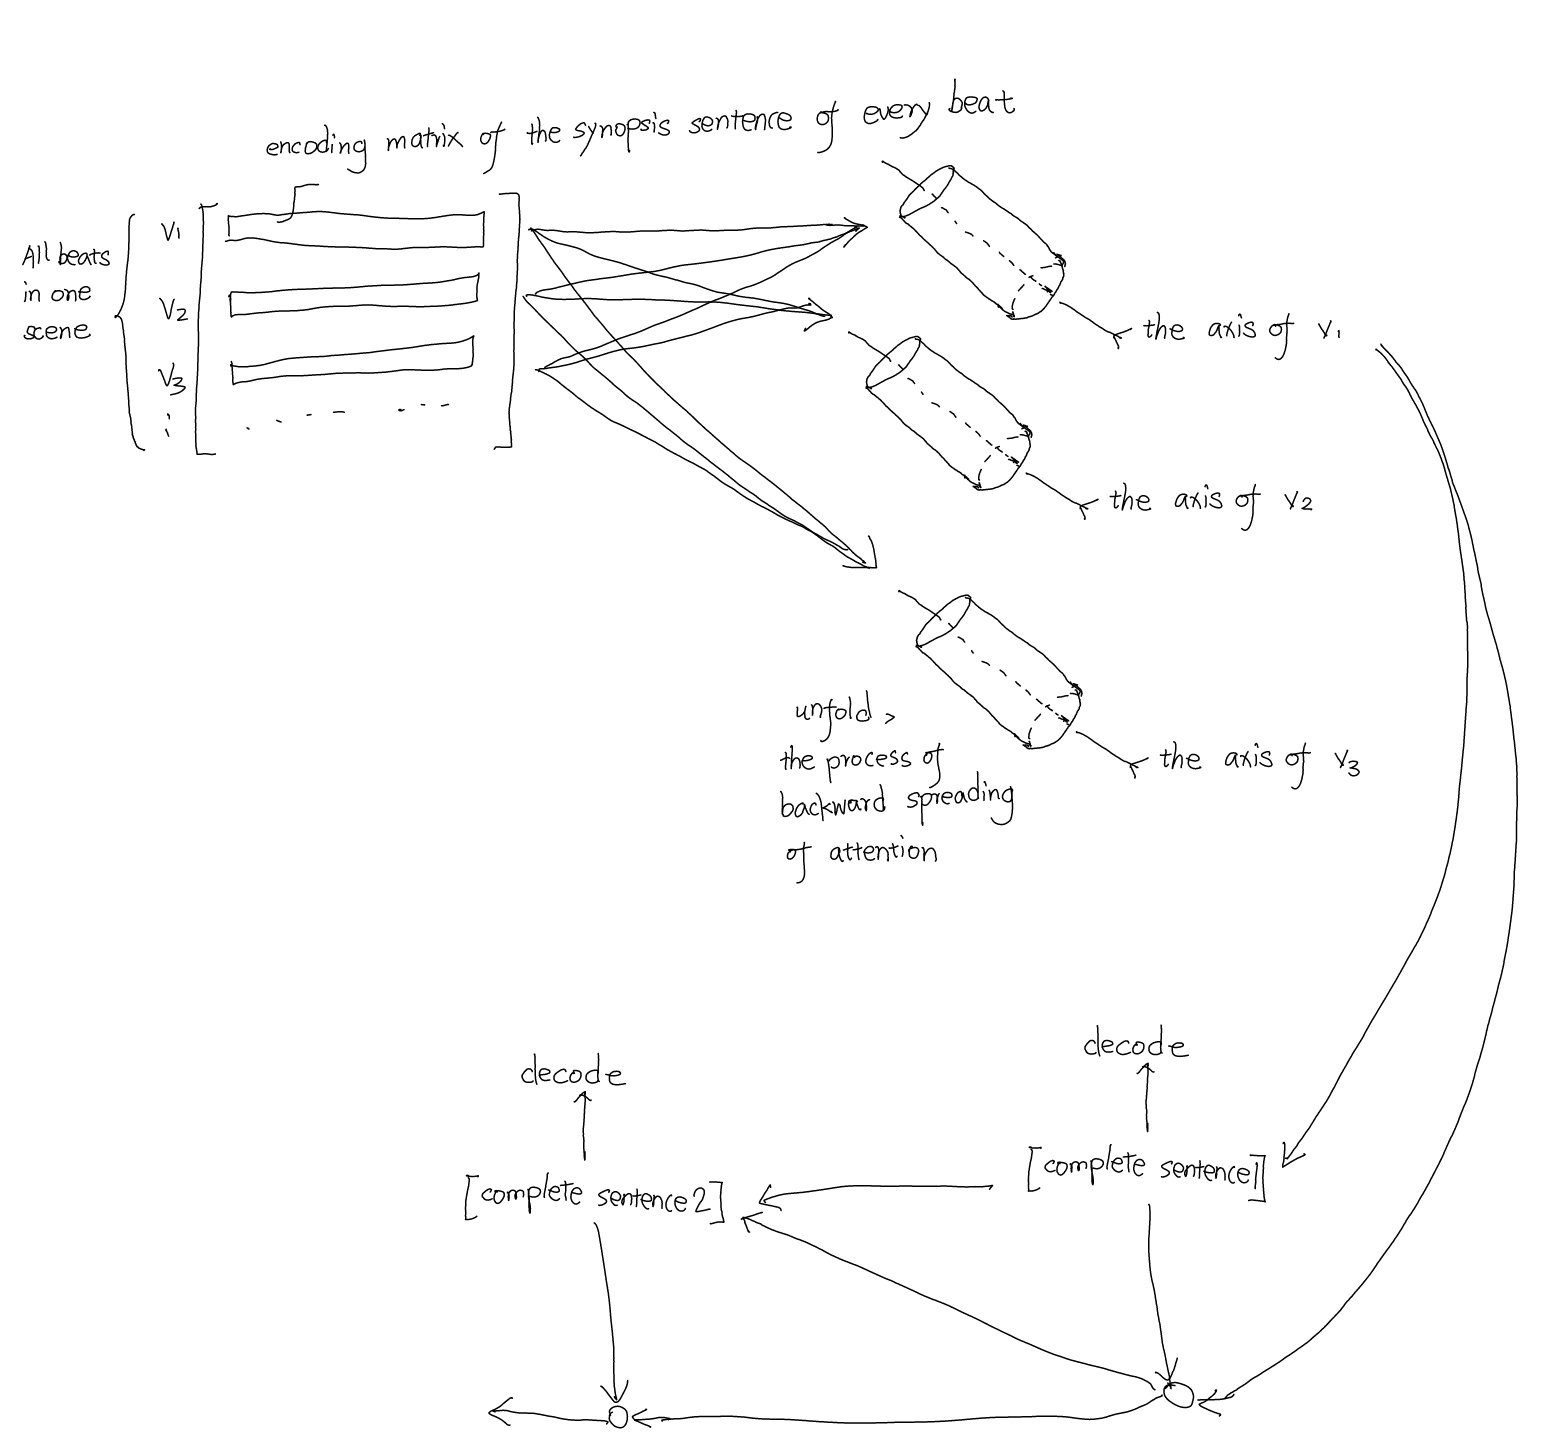 encoding matrix of the synopsis sentence of every beat
All beats
in one
scene
v1
v2
v3
the axis of v1
the axis of v2
the axis of v3
unfold,
the process of
backward spreading
of attention
decode
decode
[complete sentence1]
[complete sentence2]